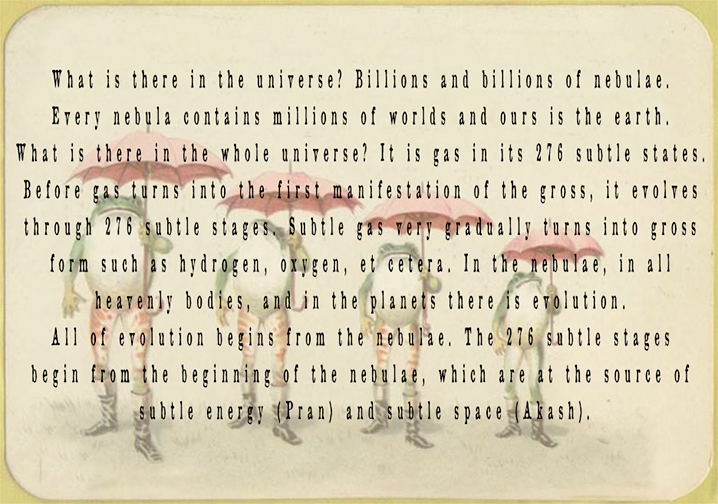 What is there in the universe? Billions and billions of nebulae.
Every nebula contains millions of worlds and ours is the earth.
What is there in the whole universe? It is gas in its 276 subtle states.
Before gas turns into the first manifestation of the gross, it evolves
through 276 subtle stages. Subtle gas very gradually turns into gross
form such as hydrogen, oxygen, et cetera. In the nebulae, in all
heavenly bodies, and in the planets there is evolution.
All of evolution begins from the nebulae. The 276 subtle stages
begin from the beginning of the nebulae, which are at the source of
subtle energy (Pran) and subtle space (Akash).